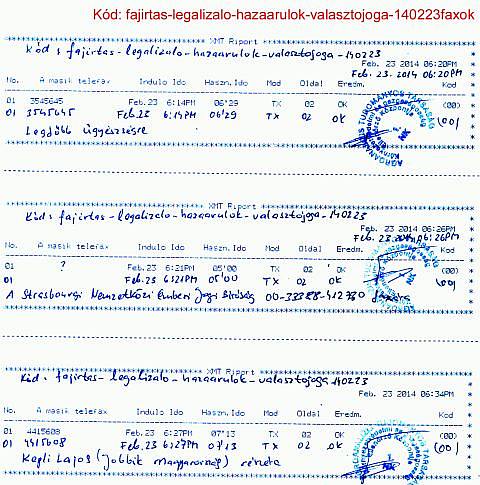 Kód: fajirtas-legalizalo-hazaarulok-valasztojoga-140223faxok
XMT Riport
Kód : fajirtas-legalizalo-hazaarulok-valasztojoga-140223
Feb. 23 2014 06:20PM
Feb. 23. 2014 06:20PM
No. A masik telefax Indulo Ido Haszn.Ido Mod Oldal Eredm. Kod
01 3545645 Feb.23 6:14PM 06'29 TX 02 OK (00)
01 3545645 Feb.23 6:14PM 06'29 TX 02 OK (00)
Legfőbb ügyészségre
XMT Riport
Kód: fajirtas-legalizalo-hazaarulok-valasztojoga-140223
Feb. 23 2014 06:26PM
Feb. 23. 2014 06:26PM
No. A masik telefax Indulo Ido Haszn.Ido Mod Oldal Eredm. Kod
01 ? Feb.23 6:21PM 05'00 TX 02 OK (00)
01 Feb.23 6:21PM 05'00 TX 02 OK (00)
A Strasbourgi Nemzetközi Emberi Jogi Bíróság 00-33388-412730
XMT Riport
Kód: fajirtas-legalizalo-hazaarulok-valasztojoga-140223
Feb. 23 2014 06:34PM
No. A masik telefax Indulo Ido Haszn.Ido Mod Oldal Eredm. Kod
01 4415608 Feb.23 6:27PM 07'13 TX 02 OK (00)
01 4415608 Feb.23 6:27PM 07'13 TX 02 OK (00)
Kepli Lajos (Jobbik Magyarország) részére